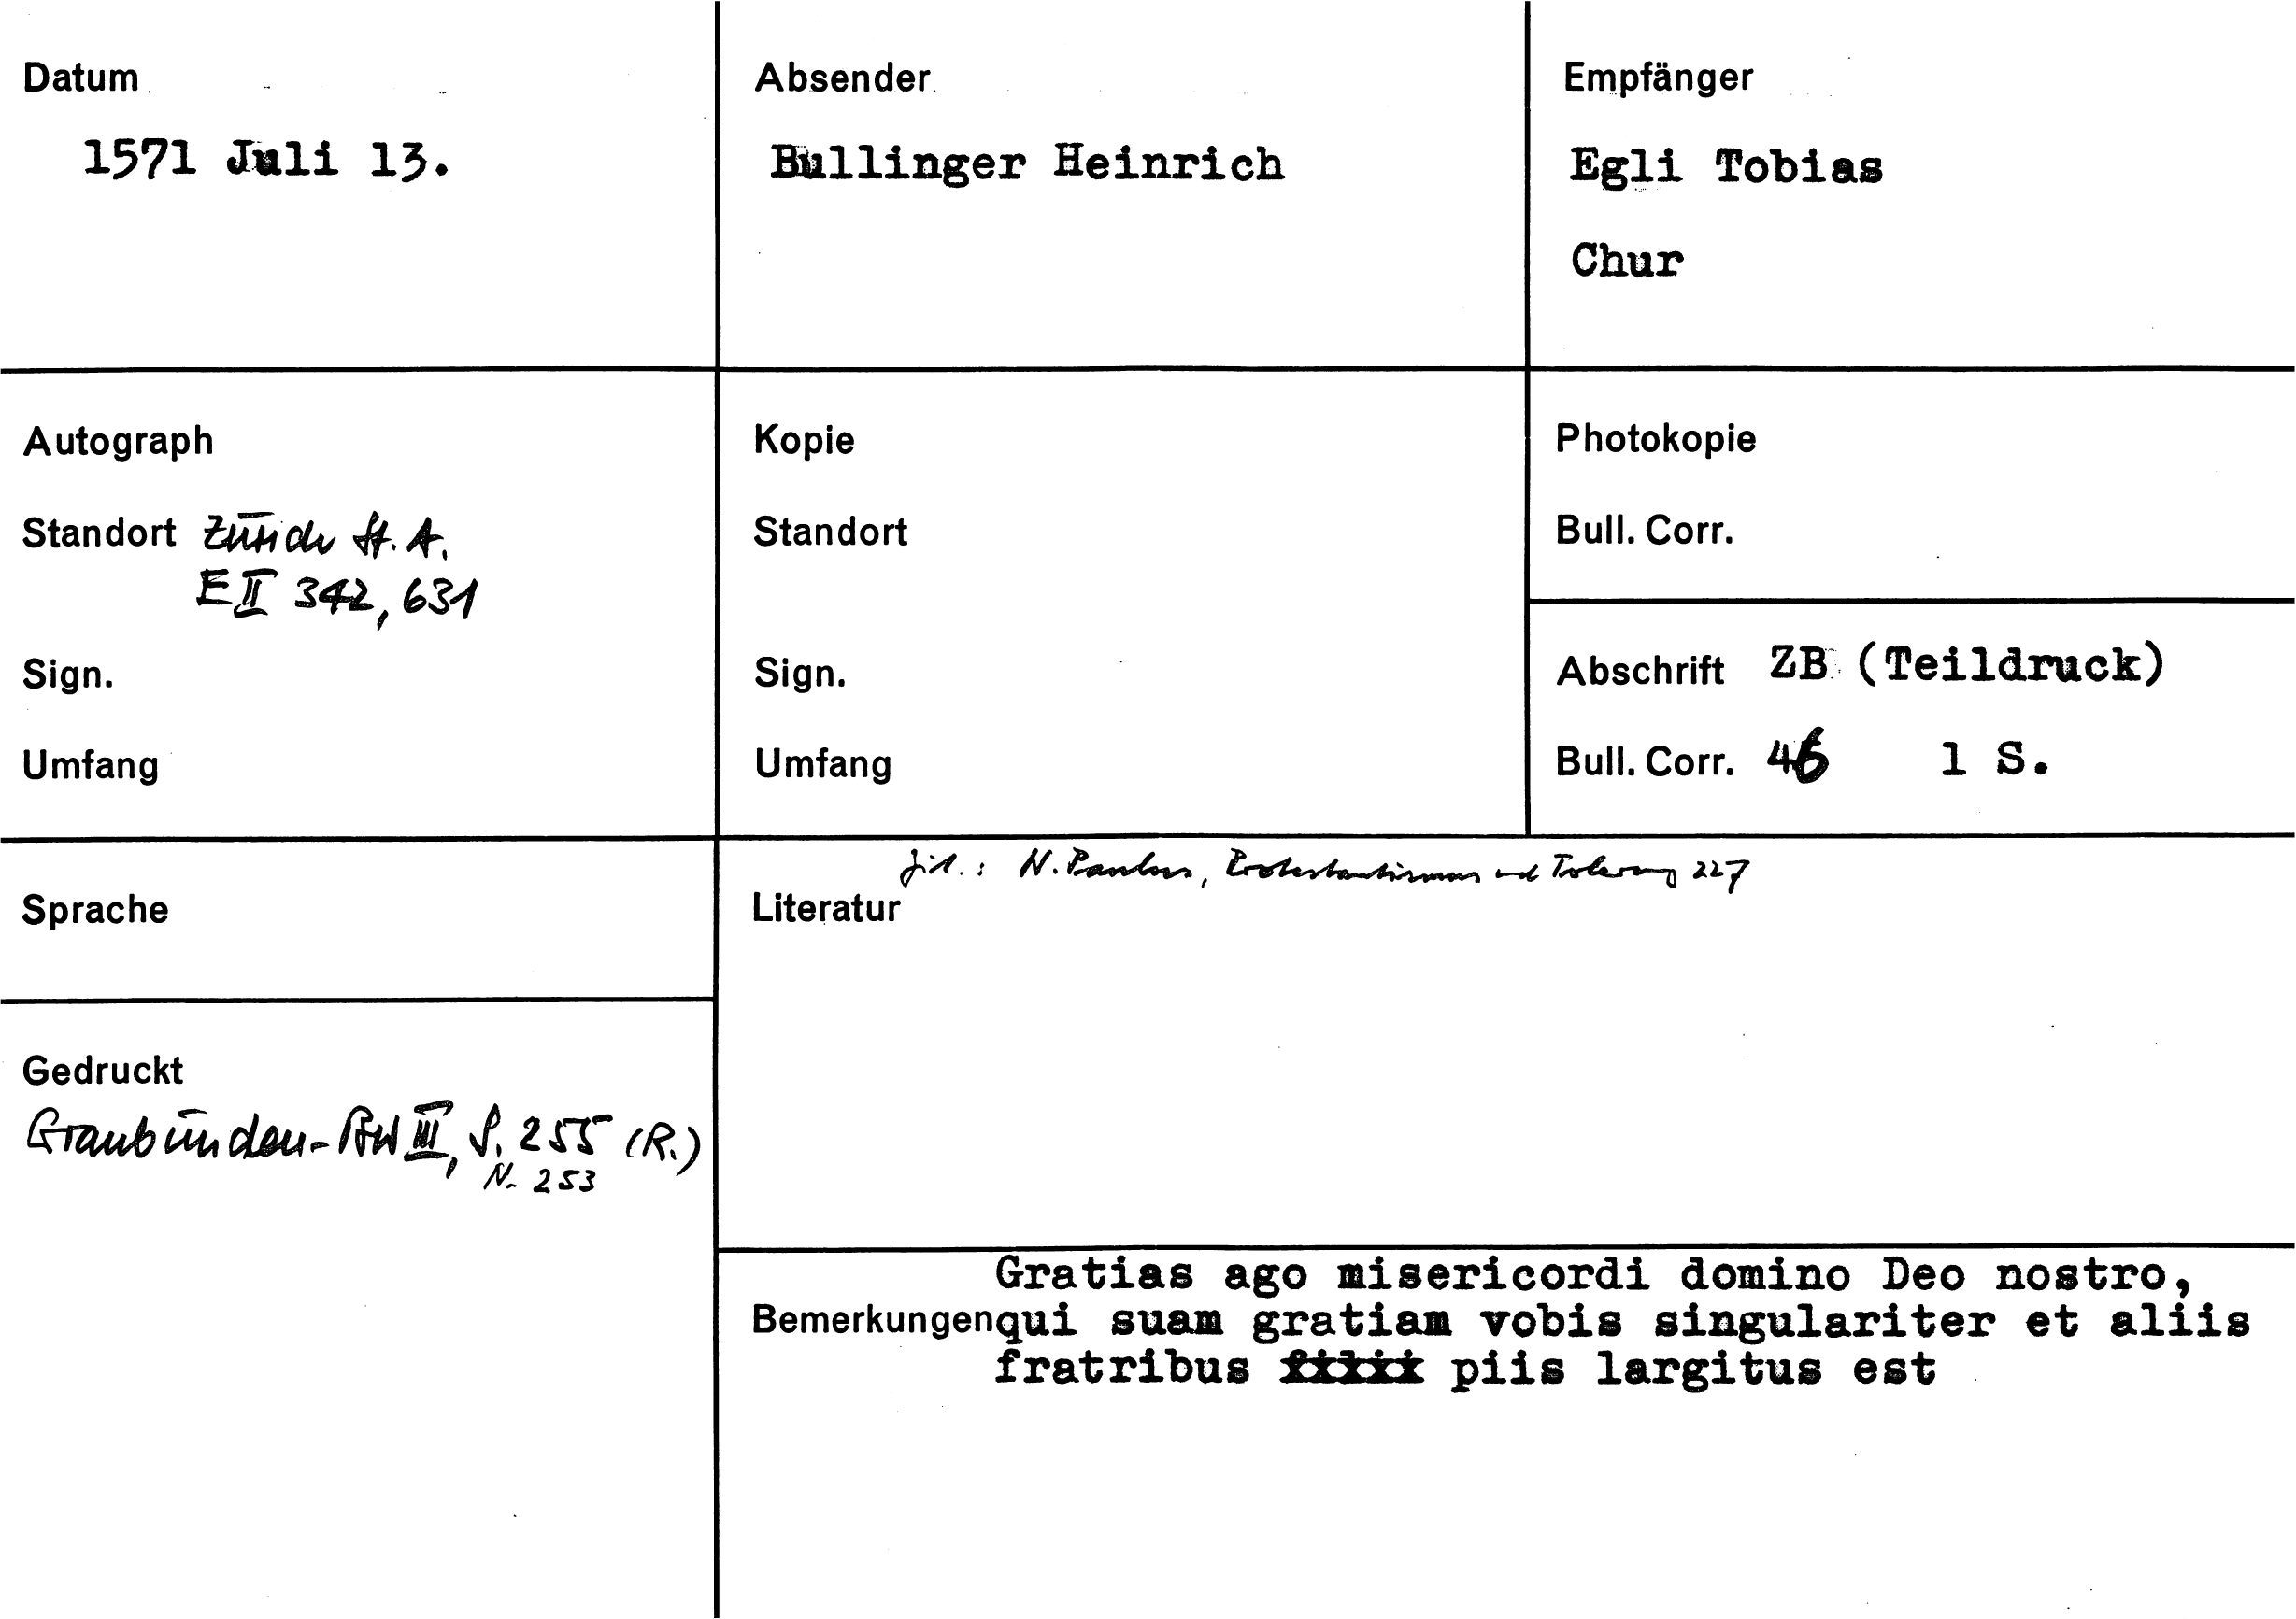 Datum
1571 Juli 13.
Absender
Bullinger Heinrich
Empfänger
Egli Tobias
Chur
Autograph
Standort Zürich St. A.
E II 342, 631
Sign.
Umfang
Kopie
Standort
Sign.
Umfang
Photokopie
Bull. Corr.
Abschrift ZB (Teildruck)
Bull. Corr. 46 1 S.
Sprache
Gedruckt
Graubünden-BW III, S. 255 (R.)
N. 253
zit.: N. Paulus, Protestantismus und Toleranz 227
Literatur
Gratias ago misericordi domino Deo nostro,
Bemerkungen qui suam gratiam vobis singulariter et aliis
fratribus piis largitus est